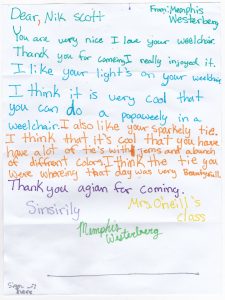 Dear, Nik Scott
From: Memphis
Westerberg
You are very nice I love your weelchair.
Thank you for coming, I really enjoyed it.
I like your light's on your weelchair
I think it is very cool that
you can do a popaweely in a
weelchair. I also like your sparkely tie.
I think that it's cool that you have
have a lot of tie's with jems and a bunch
of diffrent colors. I think the tie you
were whareing that day was very Beautyfull.
Thank you agian for coming.
Sinsirily
Mrs. Oneill's
class
Memphis
Westerberg
Sign →
here